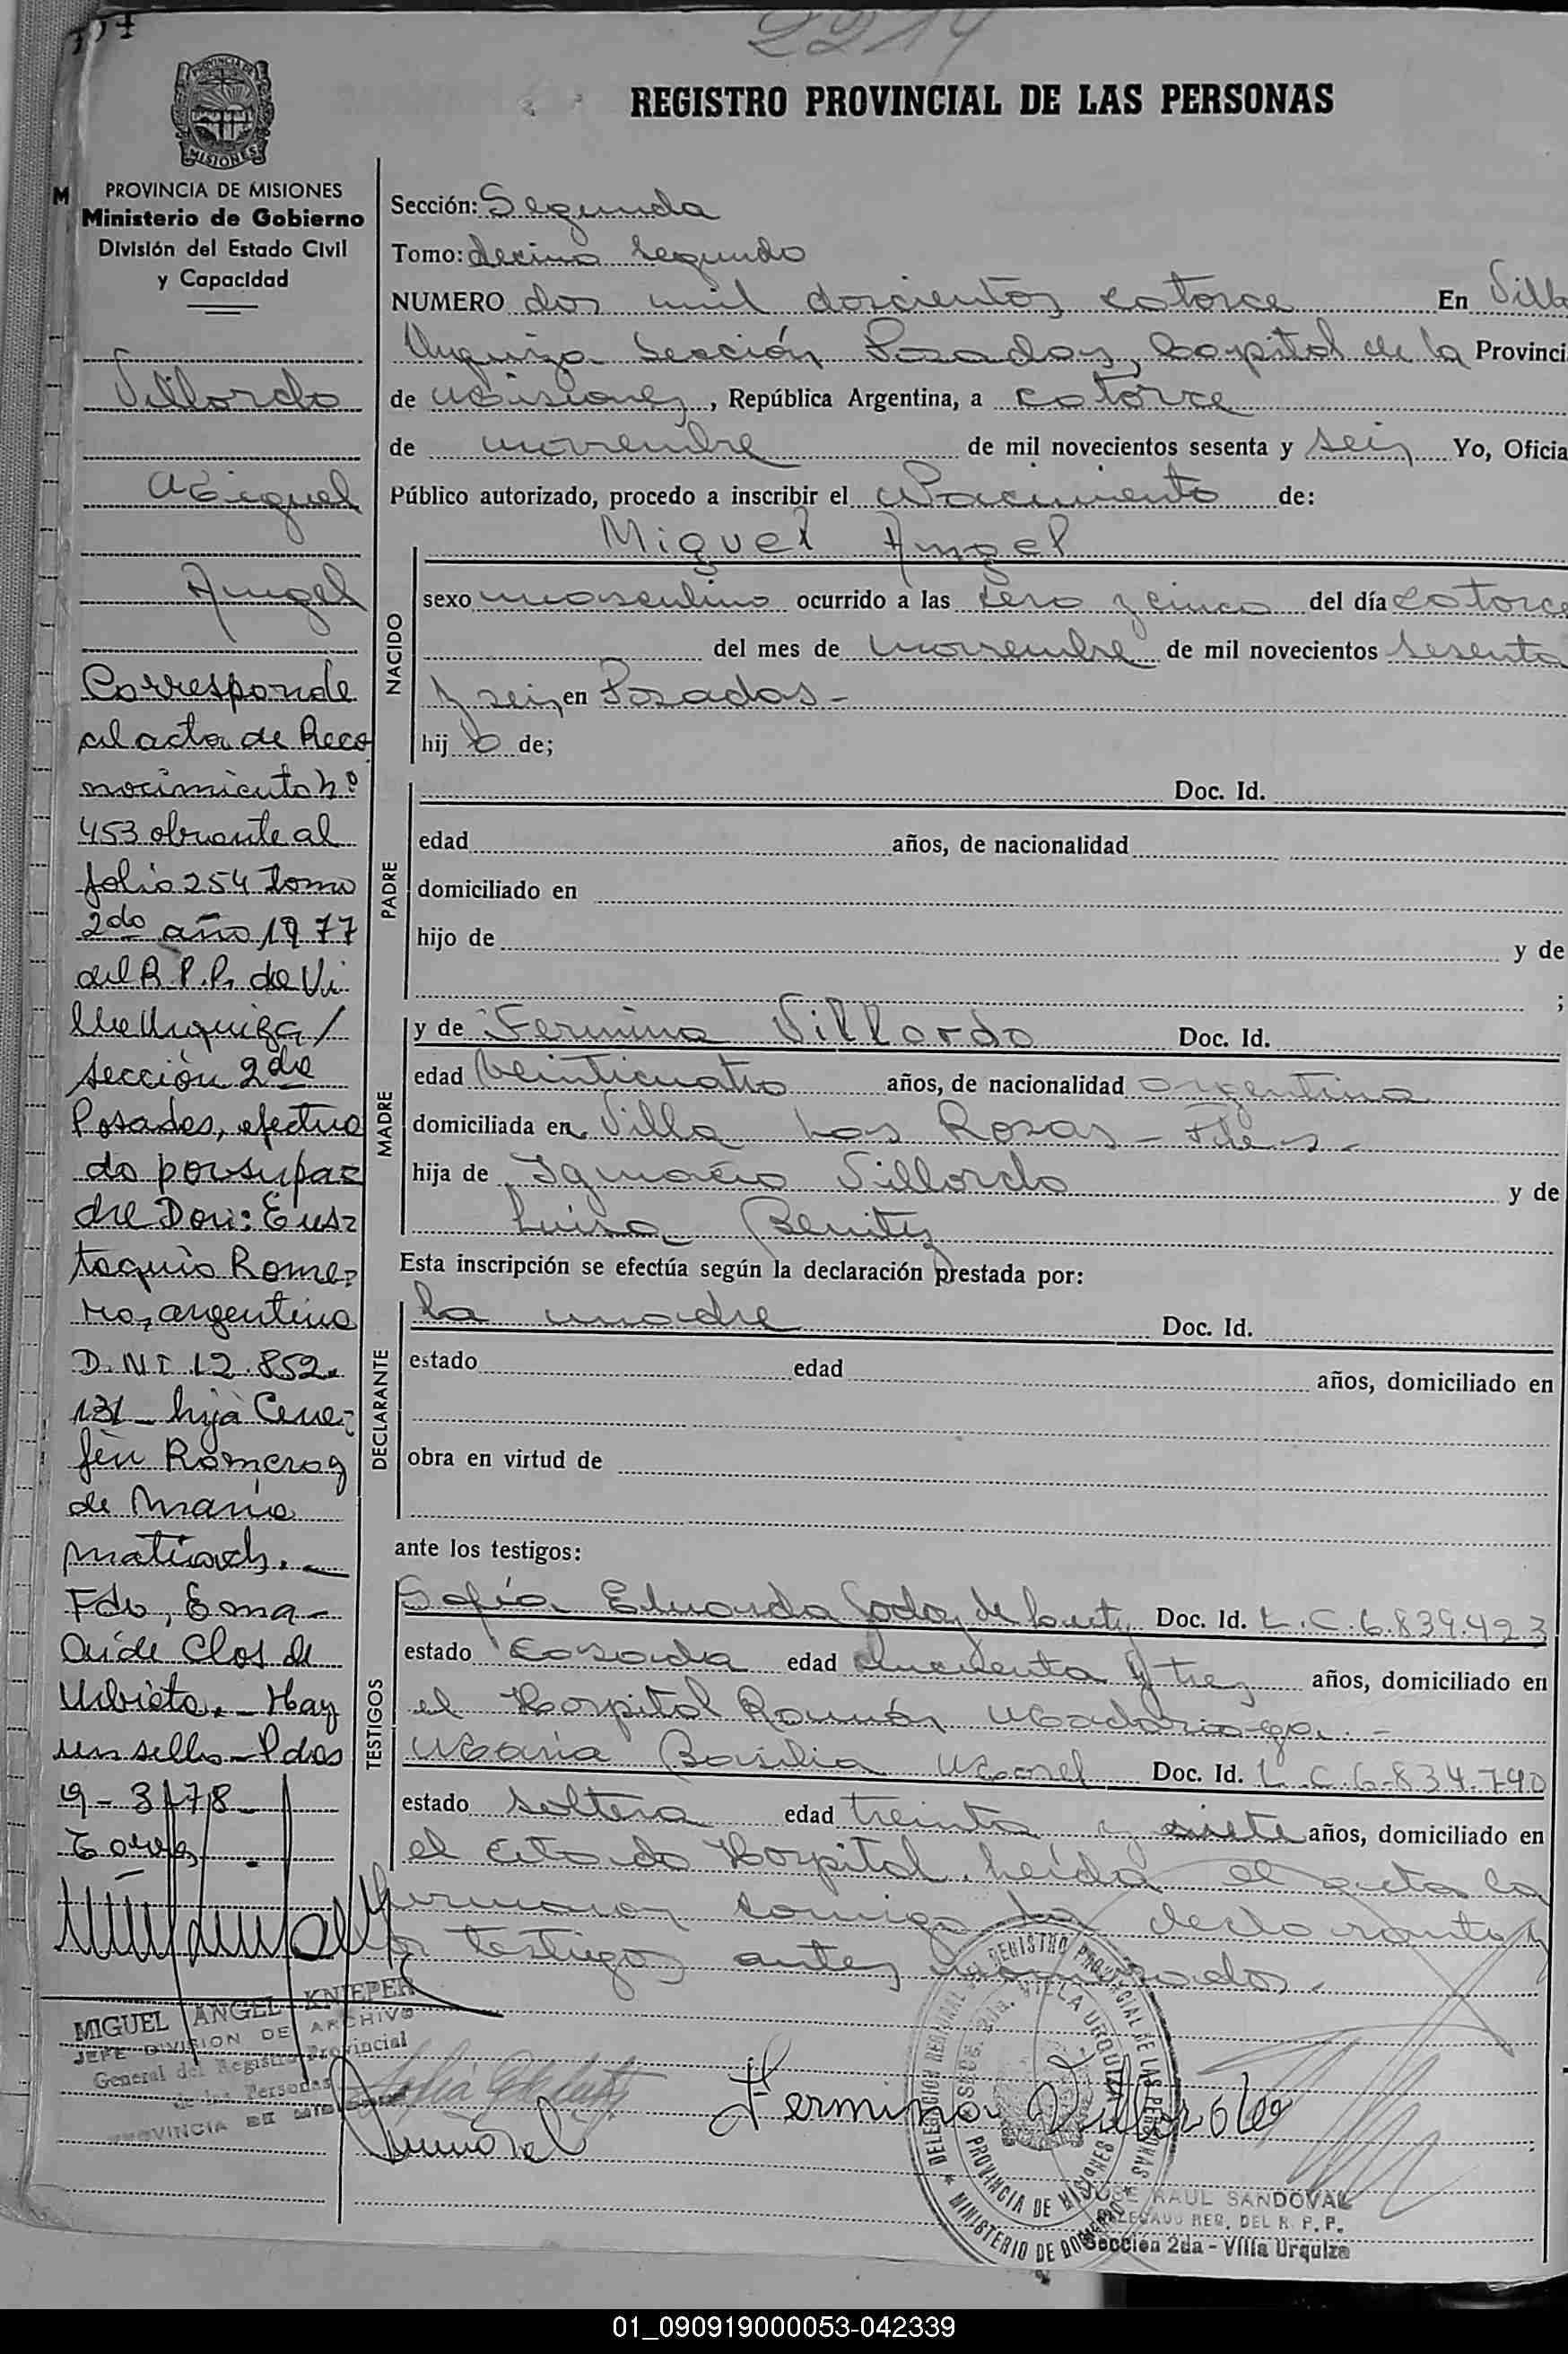 2214
REGISTRO PROVINCIAL DE LAS PERSONAS
PROVINCIA DE MISIONES
Ministerio de Gobierno
División del Estado Civil
y Capacidad
Villordo
Miguel
Angel
Corresponde
al acta de Reco
nocimiento nº
453 obrante al
folio 254 tomo
2do año 1977
del R.P.P. de Vi
lla Urquiza /
sección 2da
Posadas, efectua
do por su pa=
dre Don: Eus=
taquio Rome=
ro, argentino
D.N.I 12.852.
131 - hijo Cene=
fin Romero y
de Maria
Fdo, Ema
Aide Clos de
Urbieta. - Hay
un sello - Pdas
9-3-78
Sección: Segunda
Tomo: decimo segundo
NUMERO dos mil doscientos catorce En Villa
Urquiza Sección Posadas, Capital de la Provinci
de Misiones, República Argentina, a catorce
de noviembre de mil novecientos sesenta y seis Yo, Oficia
Público autorizado, procedo a inscribir el Nacimiento de:
Miguel Angel
NACIDO
sexo masculino ocurrido a las cero y cinco del día catorce
del mes de noviembre de mil novecientos sesenta
y seis en Posadas -
hij o de;
PADRE
Doc. Id.
edad años, de nacionalidad
domiciliado en
hijo de y de
;
MADRE
y de Fermina Villordo Doc. Id.
edad veinticuatro años, de nacionalidad argentina
domiciliada en Villa Las Rosas -
hija de Ignacio Villordo y de
Luisa Benitez
Esta inscripción se efectúa según la declaración prestada por:
DECLARANTE
la madre Doc. Id.
estado edad años, domiciliado en
obra en virtud de
ante los testigos:
TESTIGOS
Sofía Eduarda Godoy de Doc. Id. L.C.6.839.423
estado casada edad cincuenta y tres años, domiciliado en
el Hospital Ramón Madariaga. -
María Basilia Doc. Id. L.C.6.834.740
estado soltera edad treinta y siete años, domiciliado en
el citado Hospital. Leída el acta la
firman conmigo la declarante y
los testigos antes nombrados. -
MIGUEL ANGEL KNIEPER
JEFE DIVISION DE ARCHIVO
General del Registro Provincial
de las Personas
PROVINCIA DE MISIONES
Fermina Villordo
DELEGACION REGIONAL DEL REGISTRO PROVINCIAL DE LAS PERSONAS
SECC. 2da. VILLA URQUIZA
PROVINCIA DE MISIONES
* MINISTERIO DE GOBIERNO *
JOSE RAUL SANDOVAL
DELEGADO REG. DEL R. P. P.
Sección 2da - Villa Urquiza
01_090919000053-042339